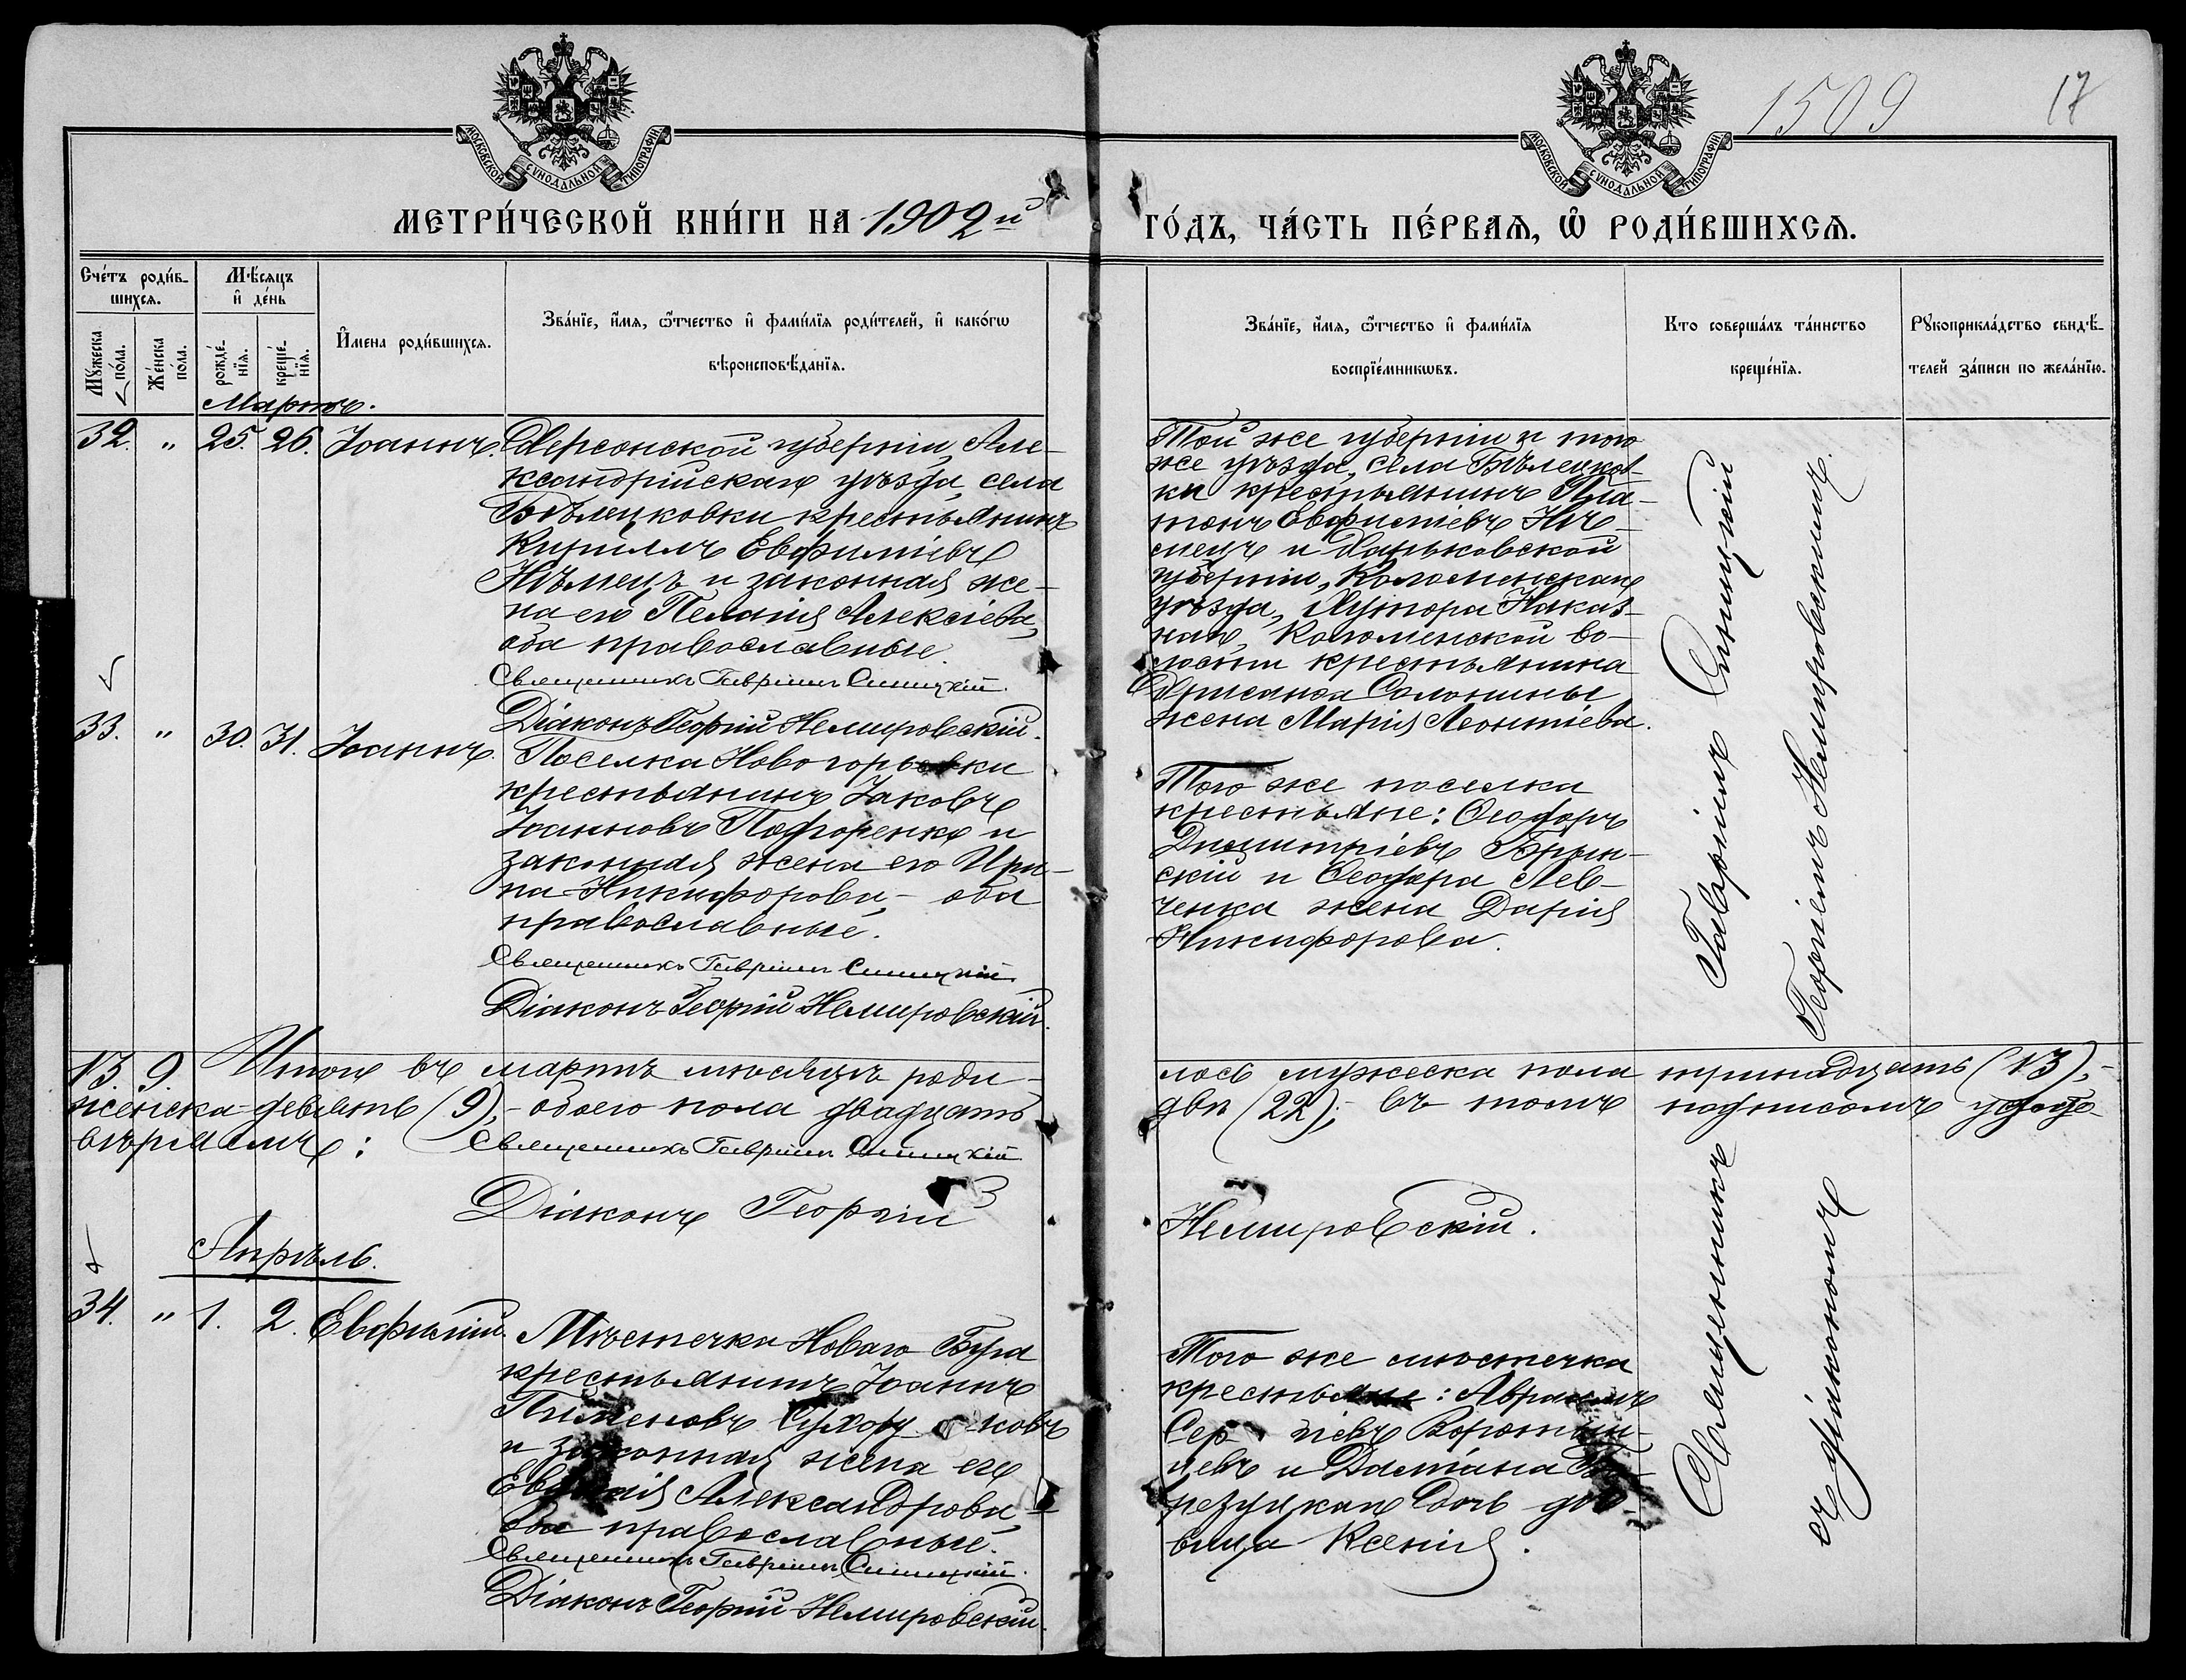 1509
17
МОСКОВСКОЙ СѴНОДАЛЬНОЙ ТИПОГРАФІИ
МОСКОВСКОЙ СѴНОДАЛЬНОЙ ТИПОГРАФІИ
МЕТРИ́ЧЕСКОЙ КНИ́ГИ НА 1902й ГО́ДЪ, ЧА́СТЬ ПЕ́РВАѦ, Ѽ РОДИ́ВШИХСѦ.
Сче́тъ роди́в-
шихсѧ.
Мꙋ́жеска
по́ла.
Же́нска
по́ла.
Мѣ́сѧцъ
и҆ де́нь
рожде́-
нїѧ.
креще́-
нїѧ.
И҆мена роди́вшихсѧ.
Зва́нїе, и҆́мѧ, ѻ҆́тчество и҆ фами́лїѧ роди́телей, и҆ како́гѡ
вѣроисповѣ́данїѧ.
Зва́нїе, и҆́мѧ, ѻ҆́тчество и҆ фами́лїѧ
воспрїе́мникѡвъ.
Кто соверша́лъ та́инство
креще́нїѧ.
Рꙋкоприкла́дство свидѣ́-
телей за́писи по жела́нїю.
Мартъ.
32. " 25. 26. Іоаннъ.
Херсонской губерніи, Але-
ксандрійскаго уѣзда, села
Бѣлецковки крестьянинъ
Кириллъ Евфиміевъ
Нѣмецъ и законная же-
на его Пелагія Алексіева,
оба православные.
Священникъ Гавріилъ Синицкій.
Діаконъ Георгій Немировскій.
Той же губерніи и того
же уѣзда, села Бѣлецков-
ки крестьянинъ Пла-
тонъ Евфиміевъ Нѣ-
мецъ и Харьковской
губерніи,
уѣзда, хутора
волости крестьянина
Солонины
жена Марія Леонтіева.
33. " 30. 31. Іоаннъ.
Поселка Новогорьевки
крестьянинъ Іаковъ
Іоанновъ Подгоренко и
законная жена его Ири-
на Никифорова, - оба
православные.
Священникъ Гавріилъ Синицкій.
Діаконъ Георгій Немировскій.
Того же поселка
крестьяне: Ѳеодоръ
Димитріевъ Брын-
скій и Ѳеодора Лев-
ченка жена Дарія
Никифорова.
Священникъ Гавріилъ Синицкій
съ діакономъ Георгіемъ Немировскимъ.
13. 9. Итого въ мартѣ мѣсяцѣ роди-
лось мужеска пола тринадцать (13),-
женска - девять (9),- обоего пола двадцать
два (22); въ томъ подписомъ удосто-
вѣряемъ:
Священникъ Гавріилъ Синицкій
Діаконъ Георгій Немировскій.
Апрѣль.
34. " 1. 2. Евфимій.
Мѣстечка Новаго Буга
крестьянинъ Іоаннъ
Пименовъ
и законная жена его
Александрова,
оба православные.
Священникъ Гавріилъ Синицкій.
Діаконъ Георгій Немировскій.
Того же мѣстечка
крестьяне: Авраамъ
Воротын-
цевъ и Даміана Бе-
резуцкаго дочь дѣ-
вица Ксенія.